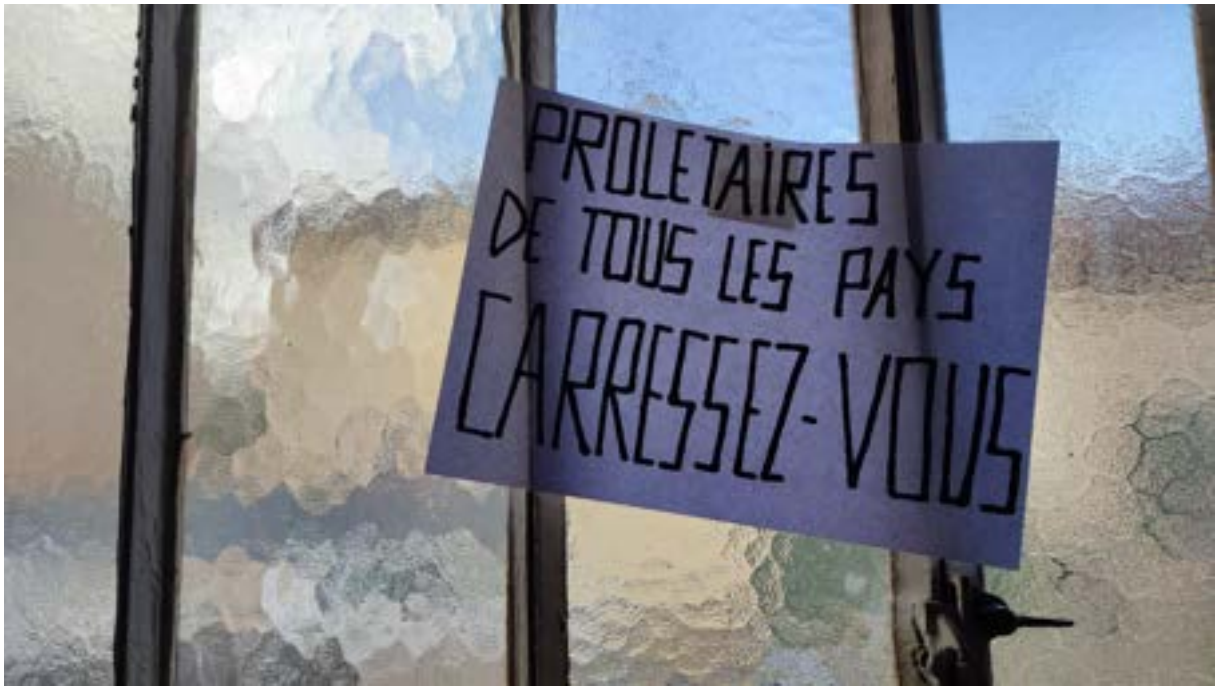 PROLETAIRES
DE TOUS LES PAYS
CARRESSEZ-VOUS